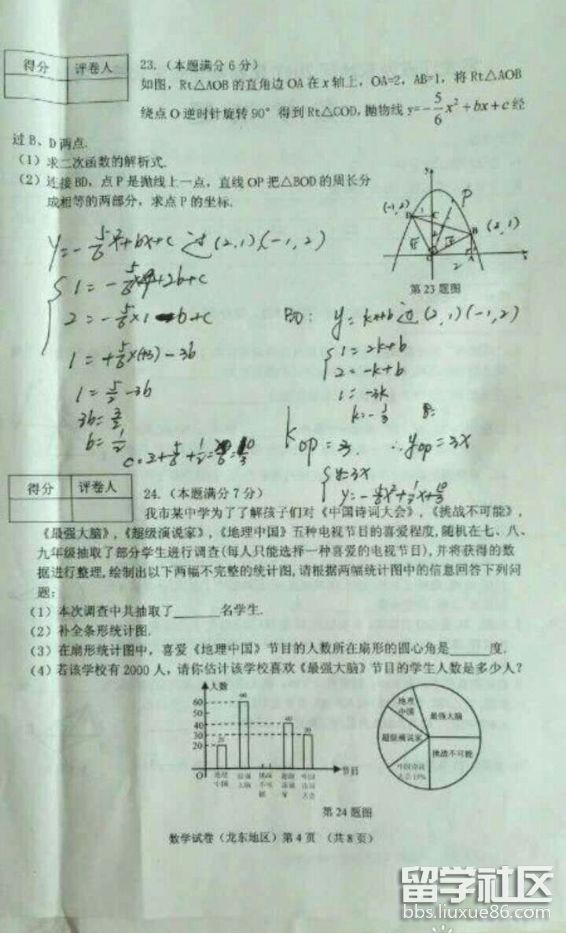 得分 评卷人
23.（本题满分6分）
如图，Rt△AOB的直角边OA在x轴上，OA=2，AB=1，将Rt△AOB
绕点O逆时针旋转90°得到Rt△COD，抛物线y=-5/6x²+bx+c经
过B、D两点.
（1）求二次函数的解析式.
（2）连接BD，点P是抛线上一点，直线OP把△BOD的周长分
成相等的两部分，求点P的坐标.
(-1,2)
P
(2,1)
第23题图
y=-5/6x²+bx+c 过(2,1)(-1,2)
2=-5/6×1-b+c
1=+5/6×(+3)-3b
1=5/2-3b
3b=3/2
b=1/2
BD: y=kx+b 过(2,1)(-1,2)
1=2k+b
2=-k+b
1=-3k
k=-1/3
kop=3 ∴yop=3x
y=3x
y=-5/6x²+1/2x+10/3
得分 评卷人
24.（本题满分7分）
我市某中学为了了解孩子们对《中国诗词大会》，《挑战不可能》，
《最强大脑》，《超级演说家》，《地理中国》五种电视节目的喜爱程度，随机在七、八、
九年级抽取了部分学生进行调查（每人只能选择一种喜爱的电视节目），并将获得的数
据进行整理，绘制出以下两幅不完整的统计图，请根据两幅统计图中的信息回答下列问
题：
（1）本次调查中共抽取了______名学生.
（2）补全条形统计图.
（3）在扇形统计图中，喜爱《地理中国》节目的人数所在扇形的圆心角是_____度.
（4）若该学校有2000人，请你估计该学校喜欢《最强大脑》节目的学生人数是多少人？
人数
60
50
40
30
20
10
O
20
60
40
30
地理中国
最强大脑
挑战不可能
超级演说家
中国诗词大会
节目
地理中国
最强大脑
超级演说家
挑战不可能
中国诗词大会
第24题图
数学试卷（龙东地区）第4页 （共8页）
留学社区
bbs.liuxue86.com